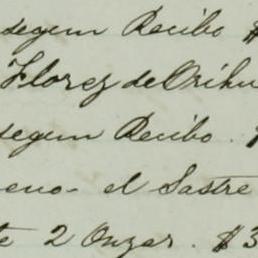 segun Recibo $
Florez de Orihu
segun Recibo. $
eno- el Sastre
te 2 Onzas. $3